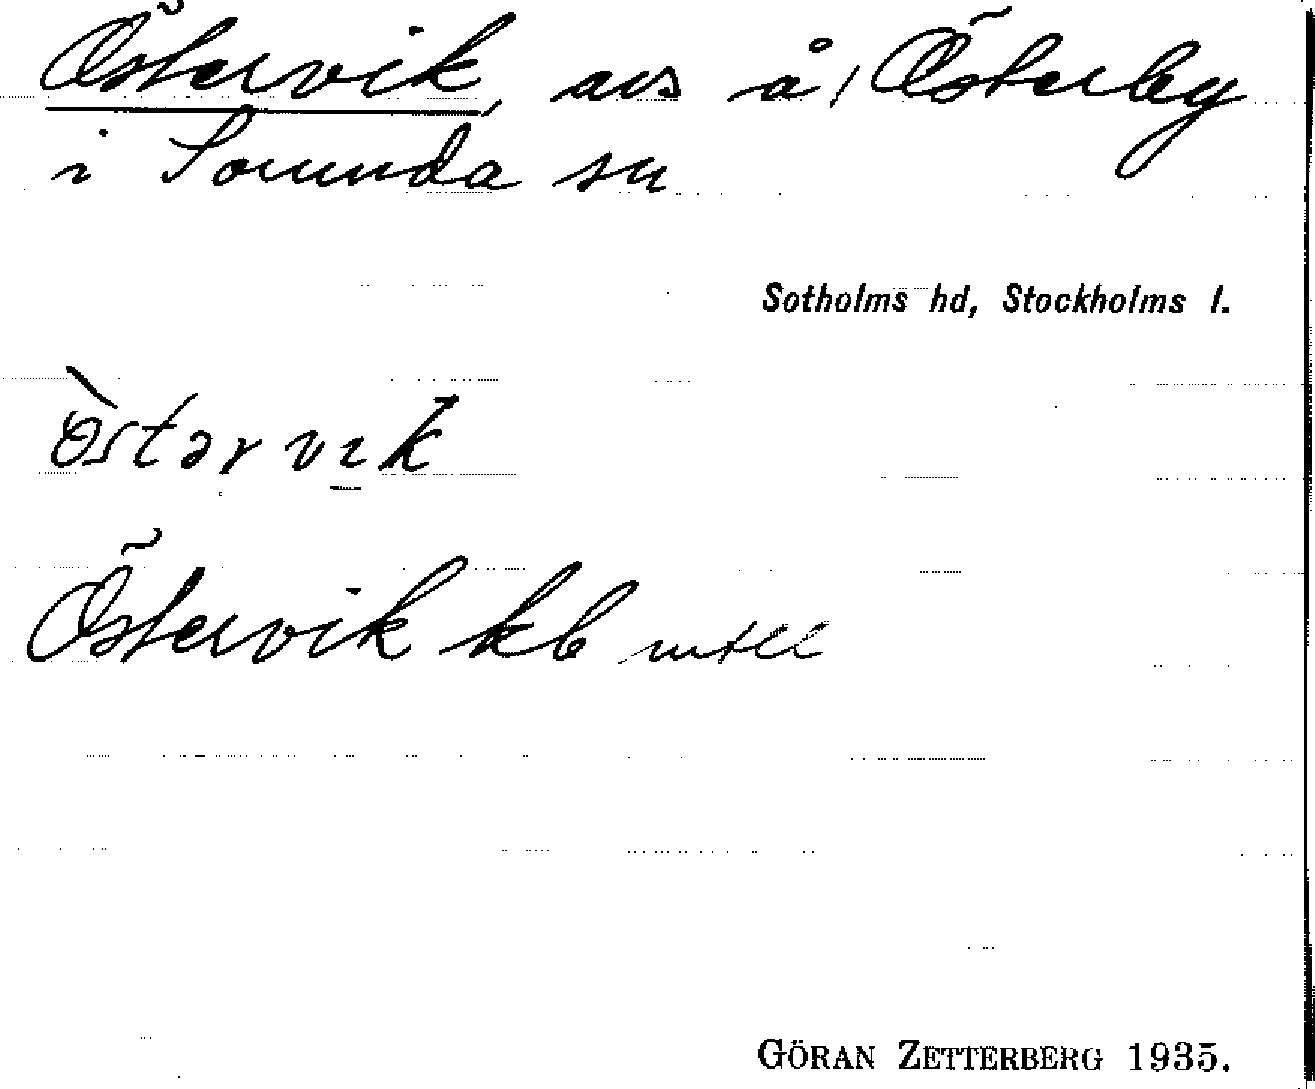 Östervik, avs å, Österby
i Sorunda sn
Sotholms hd, Stockholms l.
òstərvık
Östervik kb
GÖRAN ZETTERBERG 1935.